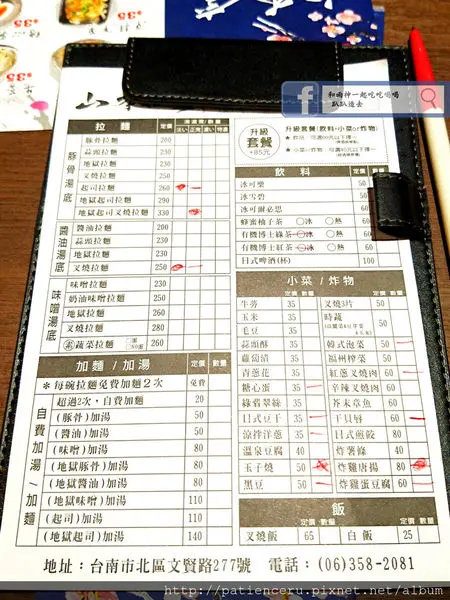 和雨神一起吃吃喝喝
趴趴造去
山
拉麵 定價 濃湯度/數量
淡い 正常 濃い 特濃
豚骨湯底
豚骨拉麵 200
蒜頭拉麵 230
地獄拉麵 230
叉燒拉麵 250
起司拉麵 260
地獄起司拉麵 290
地獄起司叉燒拉麵 330
醬油湯底
醬油拉麵 200
蒜頭拉麵 230
地獄拉麵 230
叉燒拉麵 250
味噌湯底
味噌拉麵 230
奶油味噌拉麵 250
地獄拉麵 260
叉燒拉麵 280
素 蔬菜拉麵 260
加麵/加湯 定價 數量
*每碗拉麵免費加麵2次 免費
自費加湯/加麵
超過2次,自費加麵 20
(豚骨)加湯 50
(醬油)加湯 50
(味噌)加湯 80
(地獄豚骨)加湯 80
(地獄醬油)加湯 80
(地獄味噌)加湯 110
(起司)加湯 110
(地獄起司)加湯 140
升級套餐
+85元
升級套餐(飲料+小菜or炸物)
飲料 定價 數量
冰可樂 35
冰雪碧 35
冰可爾必思 60
蜂蜜柚子茶 ○冰 ○熱 60
有機博士綠茶 ○冰 ○熱 60
有機博士紅茶 ○冰 ○熱 60
日式啤酒(杯) 100
小菜/炸物
定價 數量 定價 數量
牛蒡 35 叉燒3片 50
玉米 35 時蔬 50
毛豆 35
蒜頭酥 35 韓式泡菜 50
蘿蔔清 35 福州榨菜 50
青蔥花 35 紅蔥叉燒肉 60
糖心蛋 35 辛辣叉燒肉 60
綠翡翠絲 35 芥末章魚 60
日式豆干 35 干貝唇 60
涼拌洋蔥 35 日式煎餃 80
溫泉豆腐 40 炸薯條 40
玉子燒 50 炸雞唐揚 80
黑豆 50 炸雞蛋豆腐 60
飯
定價 數量 定價 數量
叉燒飯 65 白飯 25
地址:台南市北區文賢路277號 電話:(06)358-2081
http://patienceru.pixnet.net/album